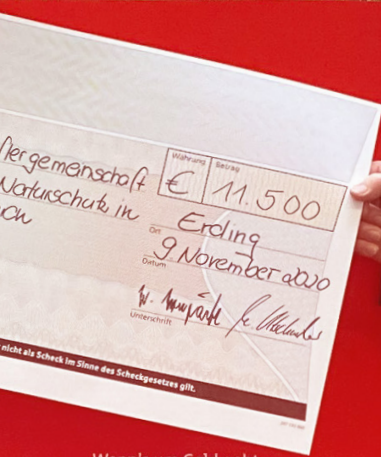 Währung Betrag
€ 11.500
tlergemeinschaft
Naturschutz in
Erding
Ort
9. November 2020
Datum
Unterschrift
nicht als Scheck im Sinne des Scheckgesetzes gilt.